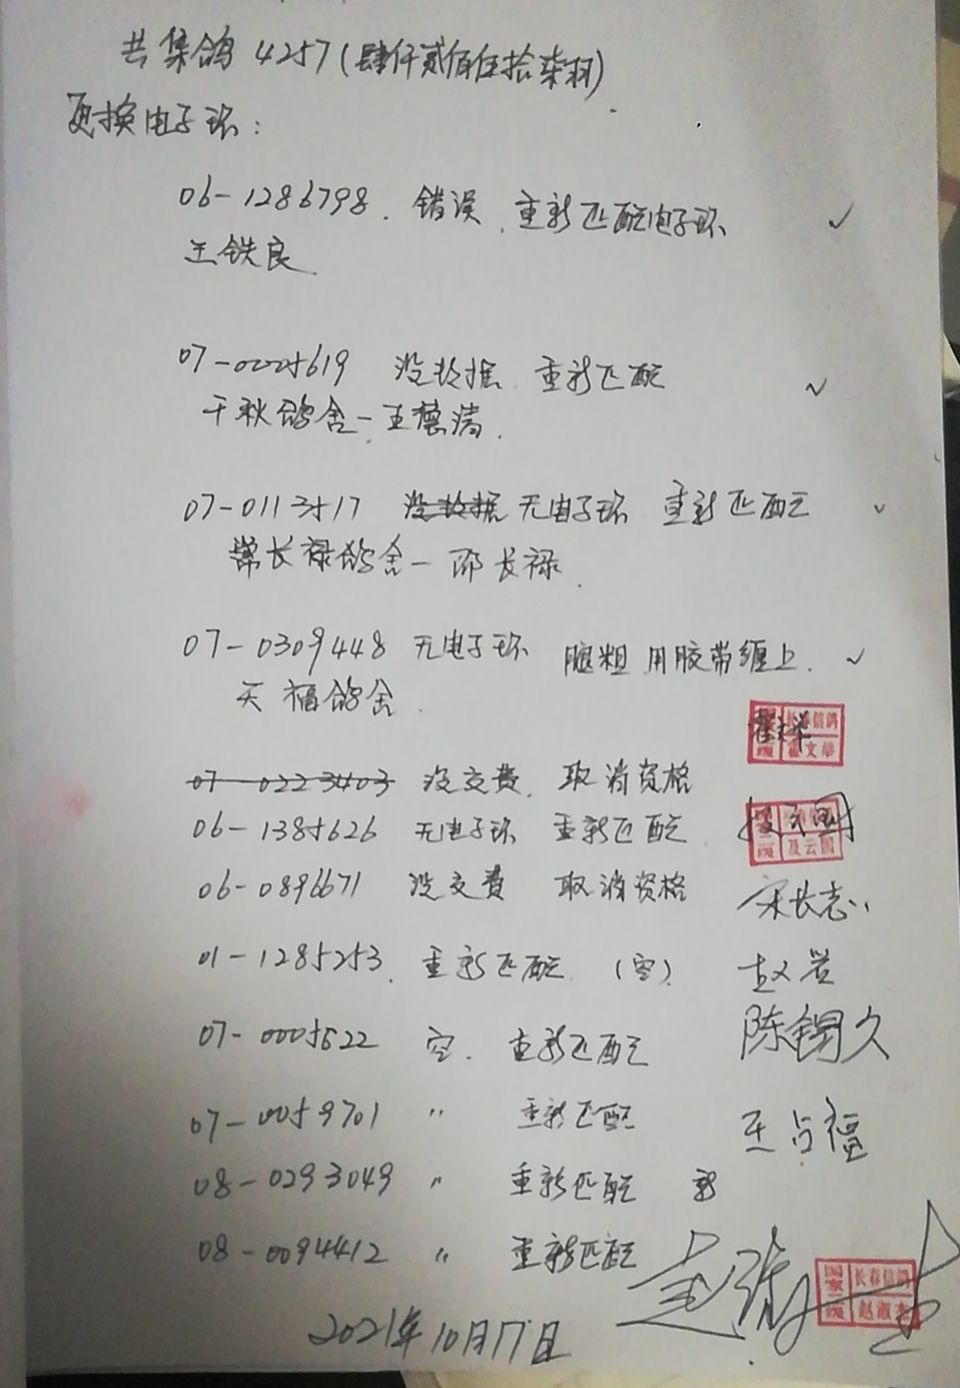 共集鸽 4257（肆仟贰佰伍拾柒羽）
更换电子环：
06-1286798. 错误. 重新匹配电子环 ✓
王铁良
07-0005619 没数据. 重新匹配 ✓
千秋鸽舍-王德清.
07-0113517 没数据 无电子环 重新匹配 ✓
常长禄鸽舍-邵长禄.
07-0309448 无电子环 腿粗 用胶带缠上. ✓
天福鸽舍.
长春信鸽
霍文华
07-0223403 没交费. 取消资格
06-1385626 无电子环 重新匹配
及云国
06-0896671 没交费 取消资格 宋长志
01-1285253. 重新匹配 （空）
07-0005622 空. 重新匹配 陈锡久
07-0059701 〃 重新匹配 王占福
08-0293049 〃 重新匹配
08-0094412 〃 重新匹配
国家 长春信鸽
2021年10月17日